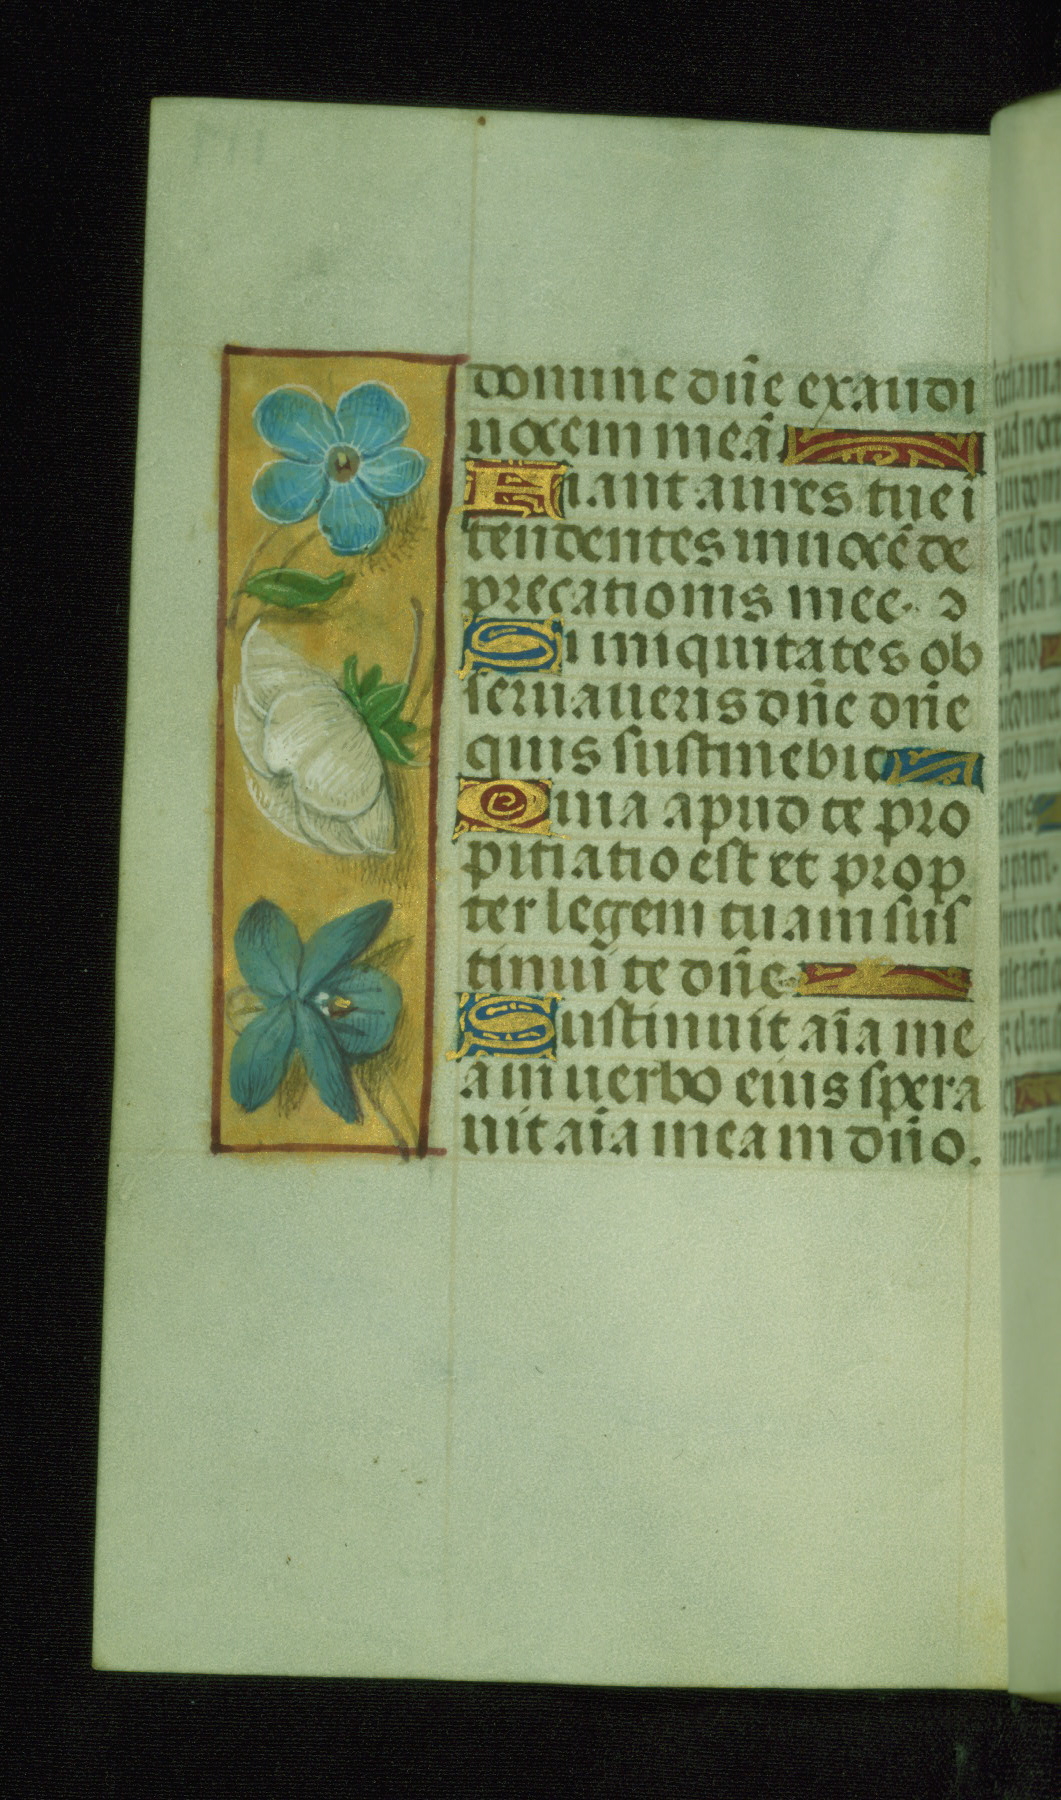 domine dn̄e exaudi
uocem meā
Fiant aures tue ī
tendentes in uocē de
precationis mee.
Si iniquitates ob
seruaueris dn̄e dn̄e
quis sustinebit
Quia apud te pro
pitiatio est et prop
ter legem tuam sus
tinui te dn̄e
Sustinuit aīa me
a in uerbo eius spera
uit aīa mea in dn̄o.